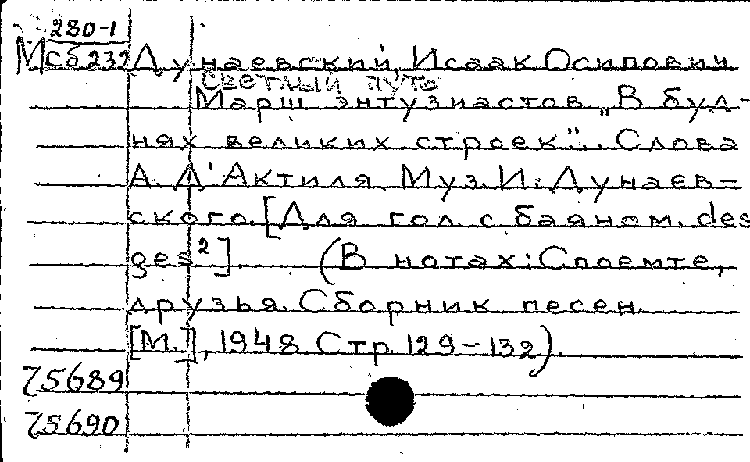 280-1
Мсб232 Дунаевский, Исаак Осипович
светлый путь
Марш энтузиастов „В буд-
нях великих строек". Слова
А. Д'Актиля Муз. И. Дунаев-
ского. [Для гол. с баяном. des
ges²]. (В нотах: Споемте,
друзья. Сборник песен
[М.], 1948 Стр. 129-132).
75689
75690